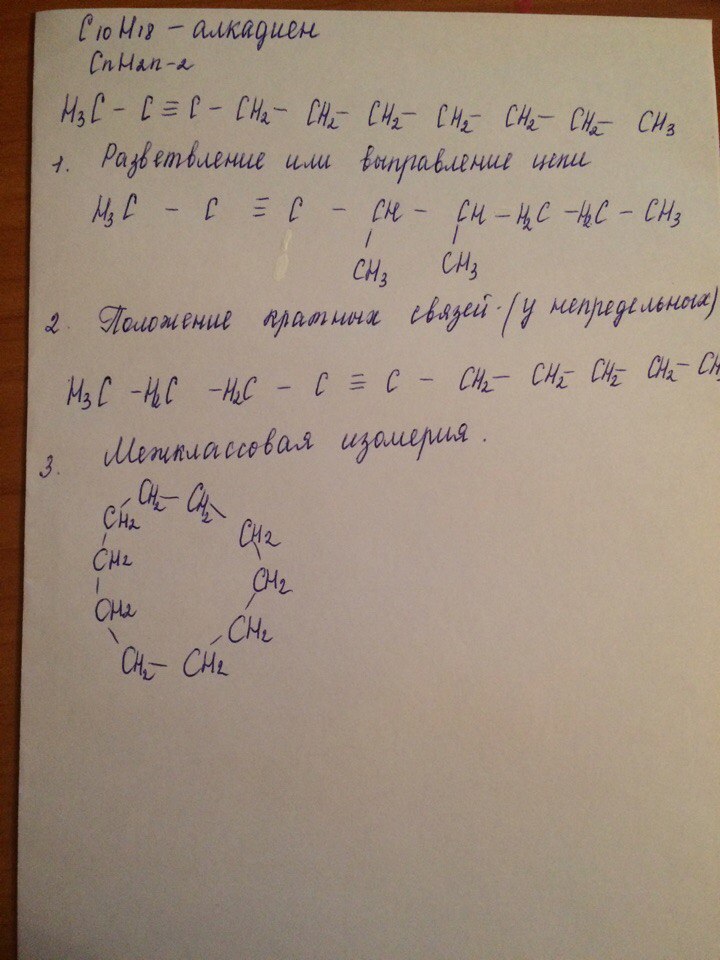 C10H18 - алкадиен
CnH2n-2
H3C - C ≡ C - CH2 - CH2 - CH2 - CH2 - CH2 - CH2 - CH3
1. Разветвление или выправление цепи
H3C - C ≡ C - CH - CH - H2C - H2C - CH3
CH3 CH3
2. Положение кратных связей. (у непредельных)
H3C - H2C - H2C - C ≡ C - CH2 - CH2 - CH2 - CH2 - CH
3. Межклассовая изомерия.
CH2 - CH2
CH2
CH2
CH2
CH2
CH2
CH2
CH2 - CH2